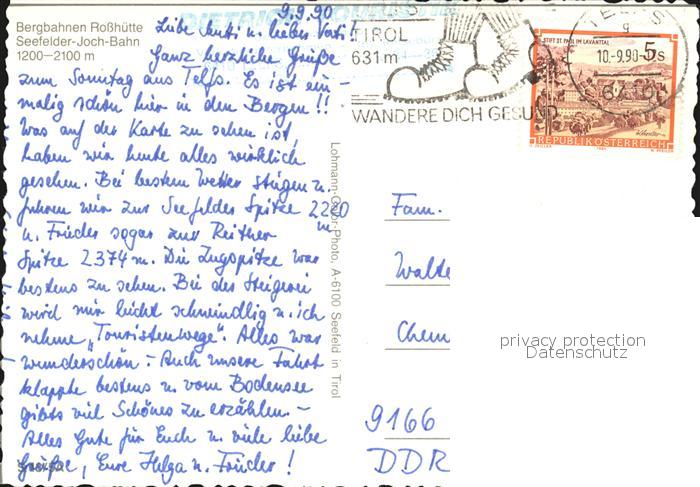 Bergbahnen Roßhütte
Seefelder-Joch-Bahn
1200—2100 m
9.9.90
Liebe Mutti u. lieber Vati!
Ganz herzliche Grüße
zum Sonntag aus Telfs. Es ist ein-
malig schön hier in den Bergen!!
Was auf der Karte zu sehen ist,
haben wir heute alles wirklich
gesehen. Bei bestem Wetter stiegen u.
fuhren wir zur Seefelder Spitze 2220 m
u. Frieder sogar zur Reither
Spitze 2374 m. Die Zugspitze war
bestens zu sehen. Bei der Steigerei
wird mir leicht schwindlig u. ich
nehme „Touristenwege“. Alles war
wunderschön. - Auch unsere Fahrt
klappte bestens u. vom Bodensee
gibts viel Schönes zu erzählen. -
Alles Gute für Euch u. viele liebe
Grüße, Eure Helga u. Frieder!
Lohmann-Color-Photo, A-6100 Seefeld in Tirol
TIROL
631m
WANDERE DICH GESUND
TELFS
10.-9.90-
6410
STIFT ST. PAUL IM LAVANTTAL
5 s
Kärnten
REPUBLIK ÖSTERREICH
Fam.
Walte
Chem
9166
DDR
privacy protection
Datenschutz